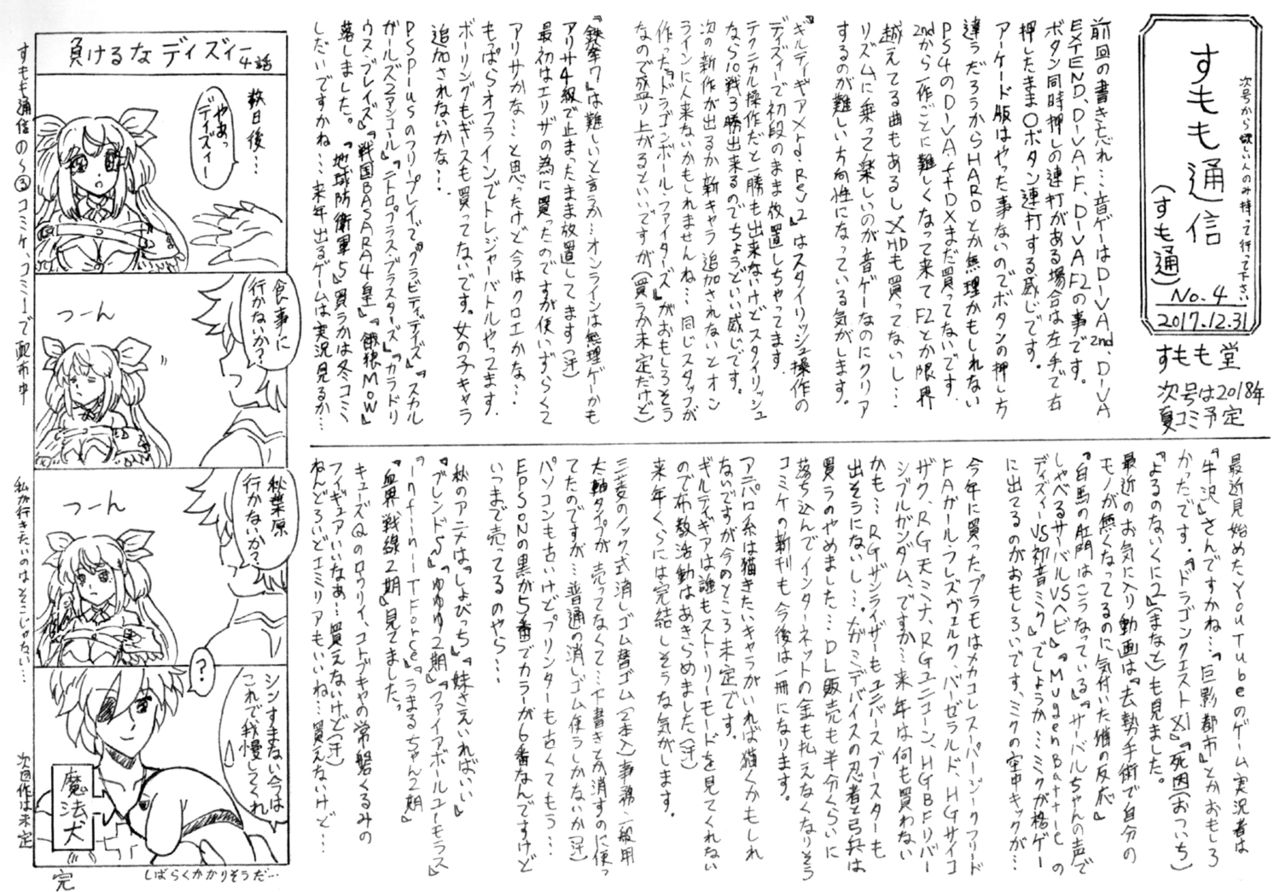 次号から欲しい人のみ持って行って下さい
すもも通信
(すも通)
No.4
2017.12.31
すもも堂
次号は2018年
夏コミ予定
前回の書き忘れ…音ゲーはDIVA2nd、DIVA
EXTEND、DIVA.F、DIVA F2の事です。
ボタン同時押しの連打がある場合は左手で右
押したまま○ボタン連打する感じです。
アーケード版はやった事ないのでボタンの押し方
違うだろうからHARDとか無理かもしれない
PS4のDIVA.f+DXまだ買ってないです。
2ndから一作ごとに難しくなって来てF2とか限界
越えてる曲もあるしXHDも買ってないし…
リズムに乗って楽しいのが音ゲーなのにクリア
するのが難しい方向性になっている気がします。
『ギルティギアXrd.Rev2』はスタイリッシュ操作の
ディズィーで初段のまま放置しちゃってます
テクニカル操作だと一勝も出来ないけどスタイリッシュ
なら10戦3勝出来るのでちょうどいい感じです。
次の新作が出るか新キャラ追加されないとオン
ラインに人来ないかもしれませんね…同じスタッフが
作った『ドラゴンボール・ファイターズ』がおもしろそう
なので盛り上がるといいですが(買うか未定だけど)
『鉄拳7』は難しいと言うか…オンラインは無理ゲーかも
アリサ4級で止まったまま放置してます(汗)
最初はエリザの為に買ったのですが使いづらくて
アリサかな…と思ったけど今はクロエかな…
もっぱらオフラインでトレジャーバトルやってます。
ボーリングもギースも買ってないです。女の子キャラ
追加されないかな…
PSPlusのフリープレイで『グラビティデイズ』『スカル
ガールズ2アンコール』『ニトロプラスブラスターズ』『カラドリ
ウス・ブレイズ』『戦国BASARA4皇』『餓狼MOW』
落しました。『地球防衛軍5』買うかは冬コミ
しだいですかね…来年出るゲームは実況見るか…
最近見始めたYouTubeのゲーム実況者は
『牛沢』さんですかね…『巨影都市』とかおもしろ
かったです。『ドラゴンクエストXI』『死因(おついち)
『よるのないくに2(まなと)』も見ました。
最近のお気に入り動画は『去勢手術で自分の
モノが無くなってるのに気付いた猫の反応』
『白馬の肛門はこうなっている』『サーバルちゃんの声で
しゃべるサーバルVSヘビ』『MugenBattleの
ディズィーVS初音ミク』でしょうか…ミクが格ゲー
に出てるのがおもしろいです、ミクの空中キックが…
今年に買ったプラモはカカコレスーパージークフリード
FAガールフレズヴェルク、バーゼラルド、HGサイコ
ザク、RG天ミナ、RGユニコーン、HGBFリバー
シブルガンダム、ですか…来年は何も買わない
かも…RGザンライザーもユニバースブースターも
出そうにないし…。メガミデバイスの忍者と弓兵は
買うのやめました…DL販売も半分くらいに
落ち込んでインターネットの金も払えなくなりそう
コミケの新刊も今後は一冊になります。
アニパロ系は描きたいキャラがいれば描くかもしれ
ないですが今のところ未定です。
ギルティギアは誰もストーリーモードを見てくれない
ので布教活動はあきらめました(汗)
来年くらいには完結しそうな気がします。
三菱のノック式消しゴム替ゴム(2本入)事務・一般用
太軸タイプが売ってなくて…下書きとか消すのに使っ
てたのですが…普通の消しゴム使うしかないか(汗)
パソコンも古いけどプリンターも古くてもう…
EPSONの黒が5番でカラーが6番なんですけど
いつまで売ってるのやら…
秋のアニメは『しょびっち』『妹さえいればいい』
『ブレンドS』『ゆゆゆ2期』『ファイブボールユーモラス』
『Infini-T Force』『うまるちゃん2期』
『血界戦線2期』見てました。
キューズQのロウリィ、コトブキヤの常磐くるみの
フィギュアいいなぁ…買えないけど(汗)
ねんどろいどエミリアもいいね…買えないけど…
負けるなディズィー4話
数日後…
やぁっディズィー
食事に行かないか?
つーん
秋葉原行かないか?
つーん
?
シンすまない今はこれで我慢してくれ
魔法犬
しばらくかかりそうだ…
完
すもも通信の①~③コミケ、コミ1で配布中
私が行きたいのはそこじゃない…
次回作は未定